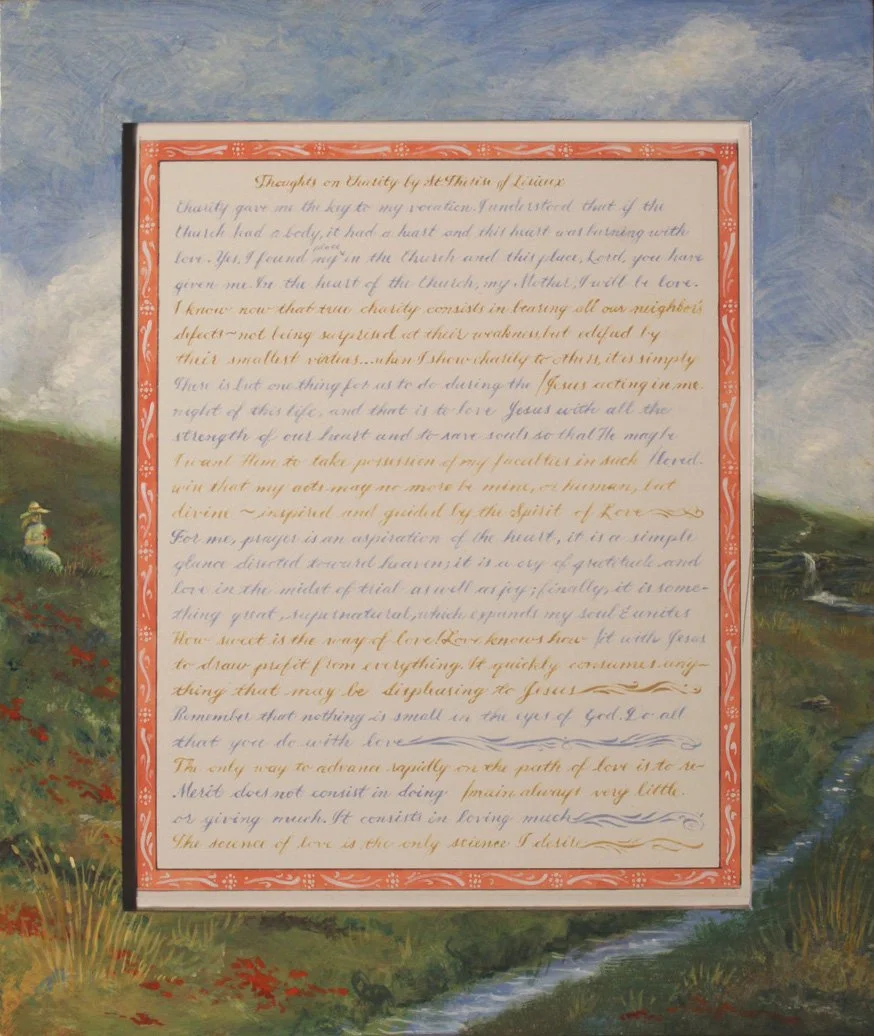 Thoughts on Charity by St. Therese of Lisieux
Charity gave me the key to my vocation. I understood that if the
Church had a body, it had a heart and this heart was burning with
love. Yes, I found my place in the Church and this place, Lord, you have
given me. In the heart of the Church, my Mother, I will be love.
I know now that true charity consists in bearing all our neighbor's
defects~not being surprised at their weakness, but edified by
their smallest virtues...when I show charity to others, it is simply
There is but one thing for us to do during the /Jesus acting in me.
night of this life, and that is to love Jesus with all the
strength of our heart and to save souls so that He may be
I want Him to take possession of my faculties in such /loved.
wise that my acts may no more be mine, or human, but
divine ~ inspired and guided by the Spirit of Love
For me, prayer is an aspiration of the heart, it is a simple
glance directed toward heaven; it is a cry of gratitude and
love in the midst of trial as well as joy; finally, it is some-
thing great, supernatural, which expands my soul & unites
How sweet is the way of love! Love knows how /it with Jesus
to draw profit from everything. It quickly consumes any-
thing that may be displeasing to Jesus
Remember that nothing is small in the eyes of God. Do all
that you do with love
The only way to advance rapidly on the path of love is to re-
Merit does not consist in doing /main always very little.
or giving much. It consists in loving much
The science of love is the only science I desire